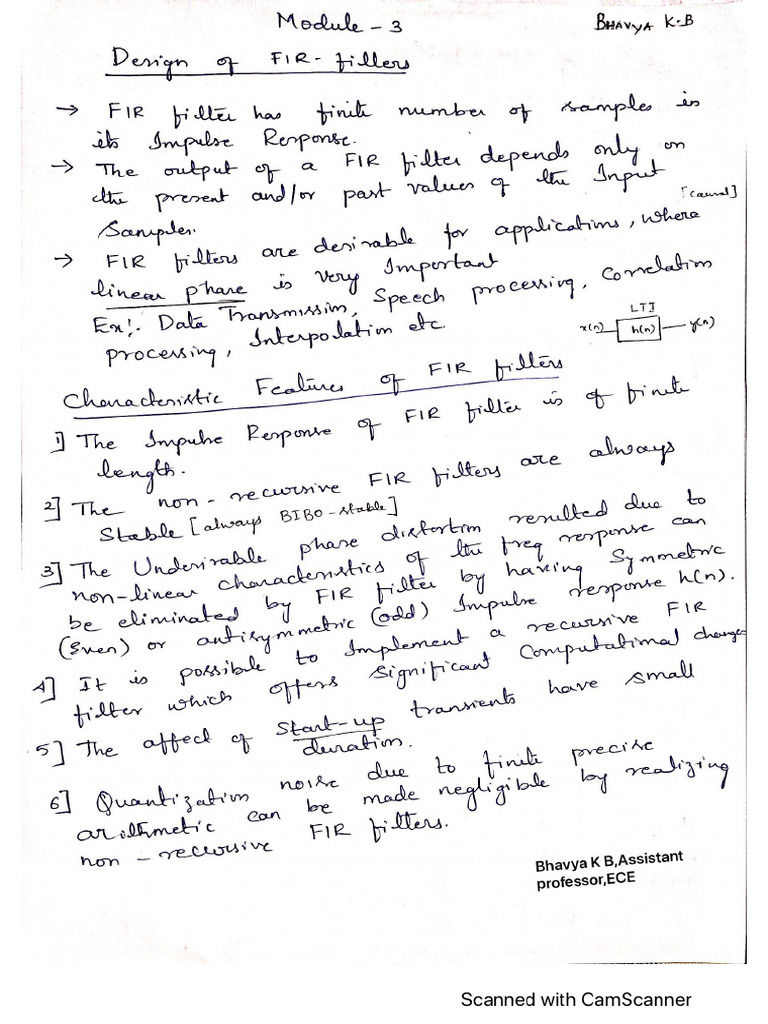 Module - 3
BHAVYA K.B
Design of FIR - filters
→ FIR filter has finite number of samples is
its Impulse Response.
→ The output of a FIR filter depends only on
the present and/or past values of the Input
[causal]
Samples.
→ FIR filters are desirable for applications, where
linear phase is very Important
Ex:- Data Transmission, Speech processing, Correlation
processing, Interpolation etc.
LTI
x(n) h(n) y(n)
Characteristic Features of FIR filters
1] The Impulse Response of FIR filter is of finite
length.
2] The non-recursive FIR filters are always
Stable [always BIBO-stable]
3] The Undesirable phase distortion resulted due to
non-linear characteristics of the freq response can
be eliminated by FIR filter by having Symmetric
(Even) or antisymmetric (odd) Impulse response h(n).
4] It is possible to Implement a recursive FIR
filter which offers significant Computational changes
5] The affect of Start-up transients have small
duration.
6] Quantization noise due to finite precise
arithmetic can be made negligible by realizing
non-recursive FIR filters.
Bhavya K B,Assistant
professor,ECE
Scanned with CamScanner